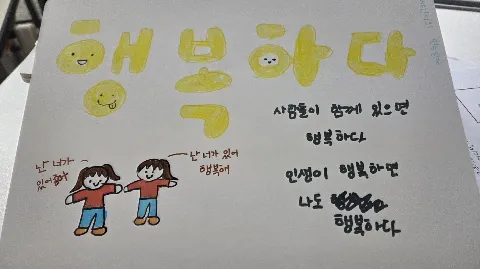 행복하다
사람들이 함께 있으면
행복하다
인생이 행복하면
나도
행복하다
난 너가
있어 좋아
난 너가 있어
행복해